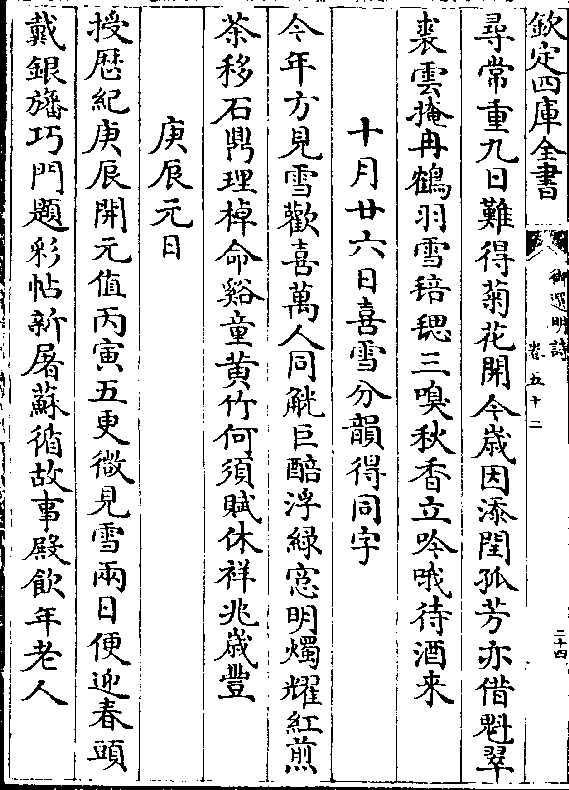 欽定四庫全書
御選明詩
卷五十二
二十四
尋常重九日難得菊花開今歳因添閏孤芳亦借魁翠
裘雲掩冉鶴羽雪䕃毸三嗅秋香立吟哦待酒来
十月廿六日喜雪分韻得同字
今年方見雪歡喜萬人同觥巨醅浮綠窓明燭耀紅煎
茶移石鼎理棹命谿童黄竹何須賦休祥兆歳豐
庚辰元日
授厯紀庚辰開元值丙寅五更微見雪兩日便迎春頭
戴銀旛巧門題彩帖新屠蘇循故事殿飲年老人